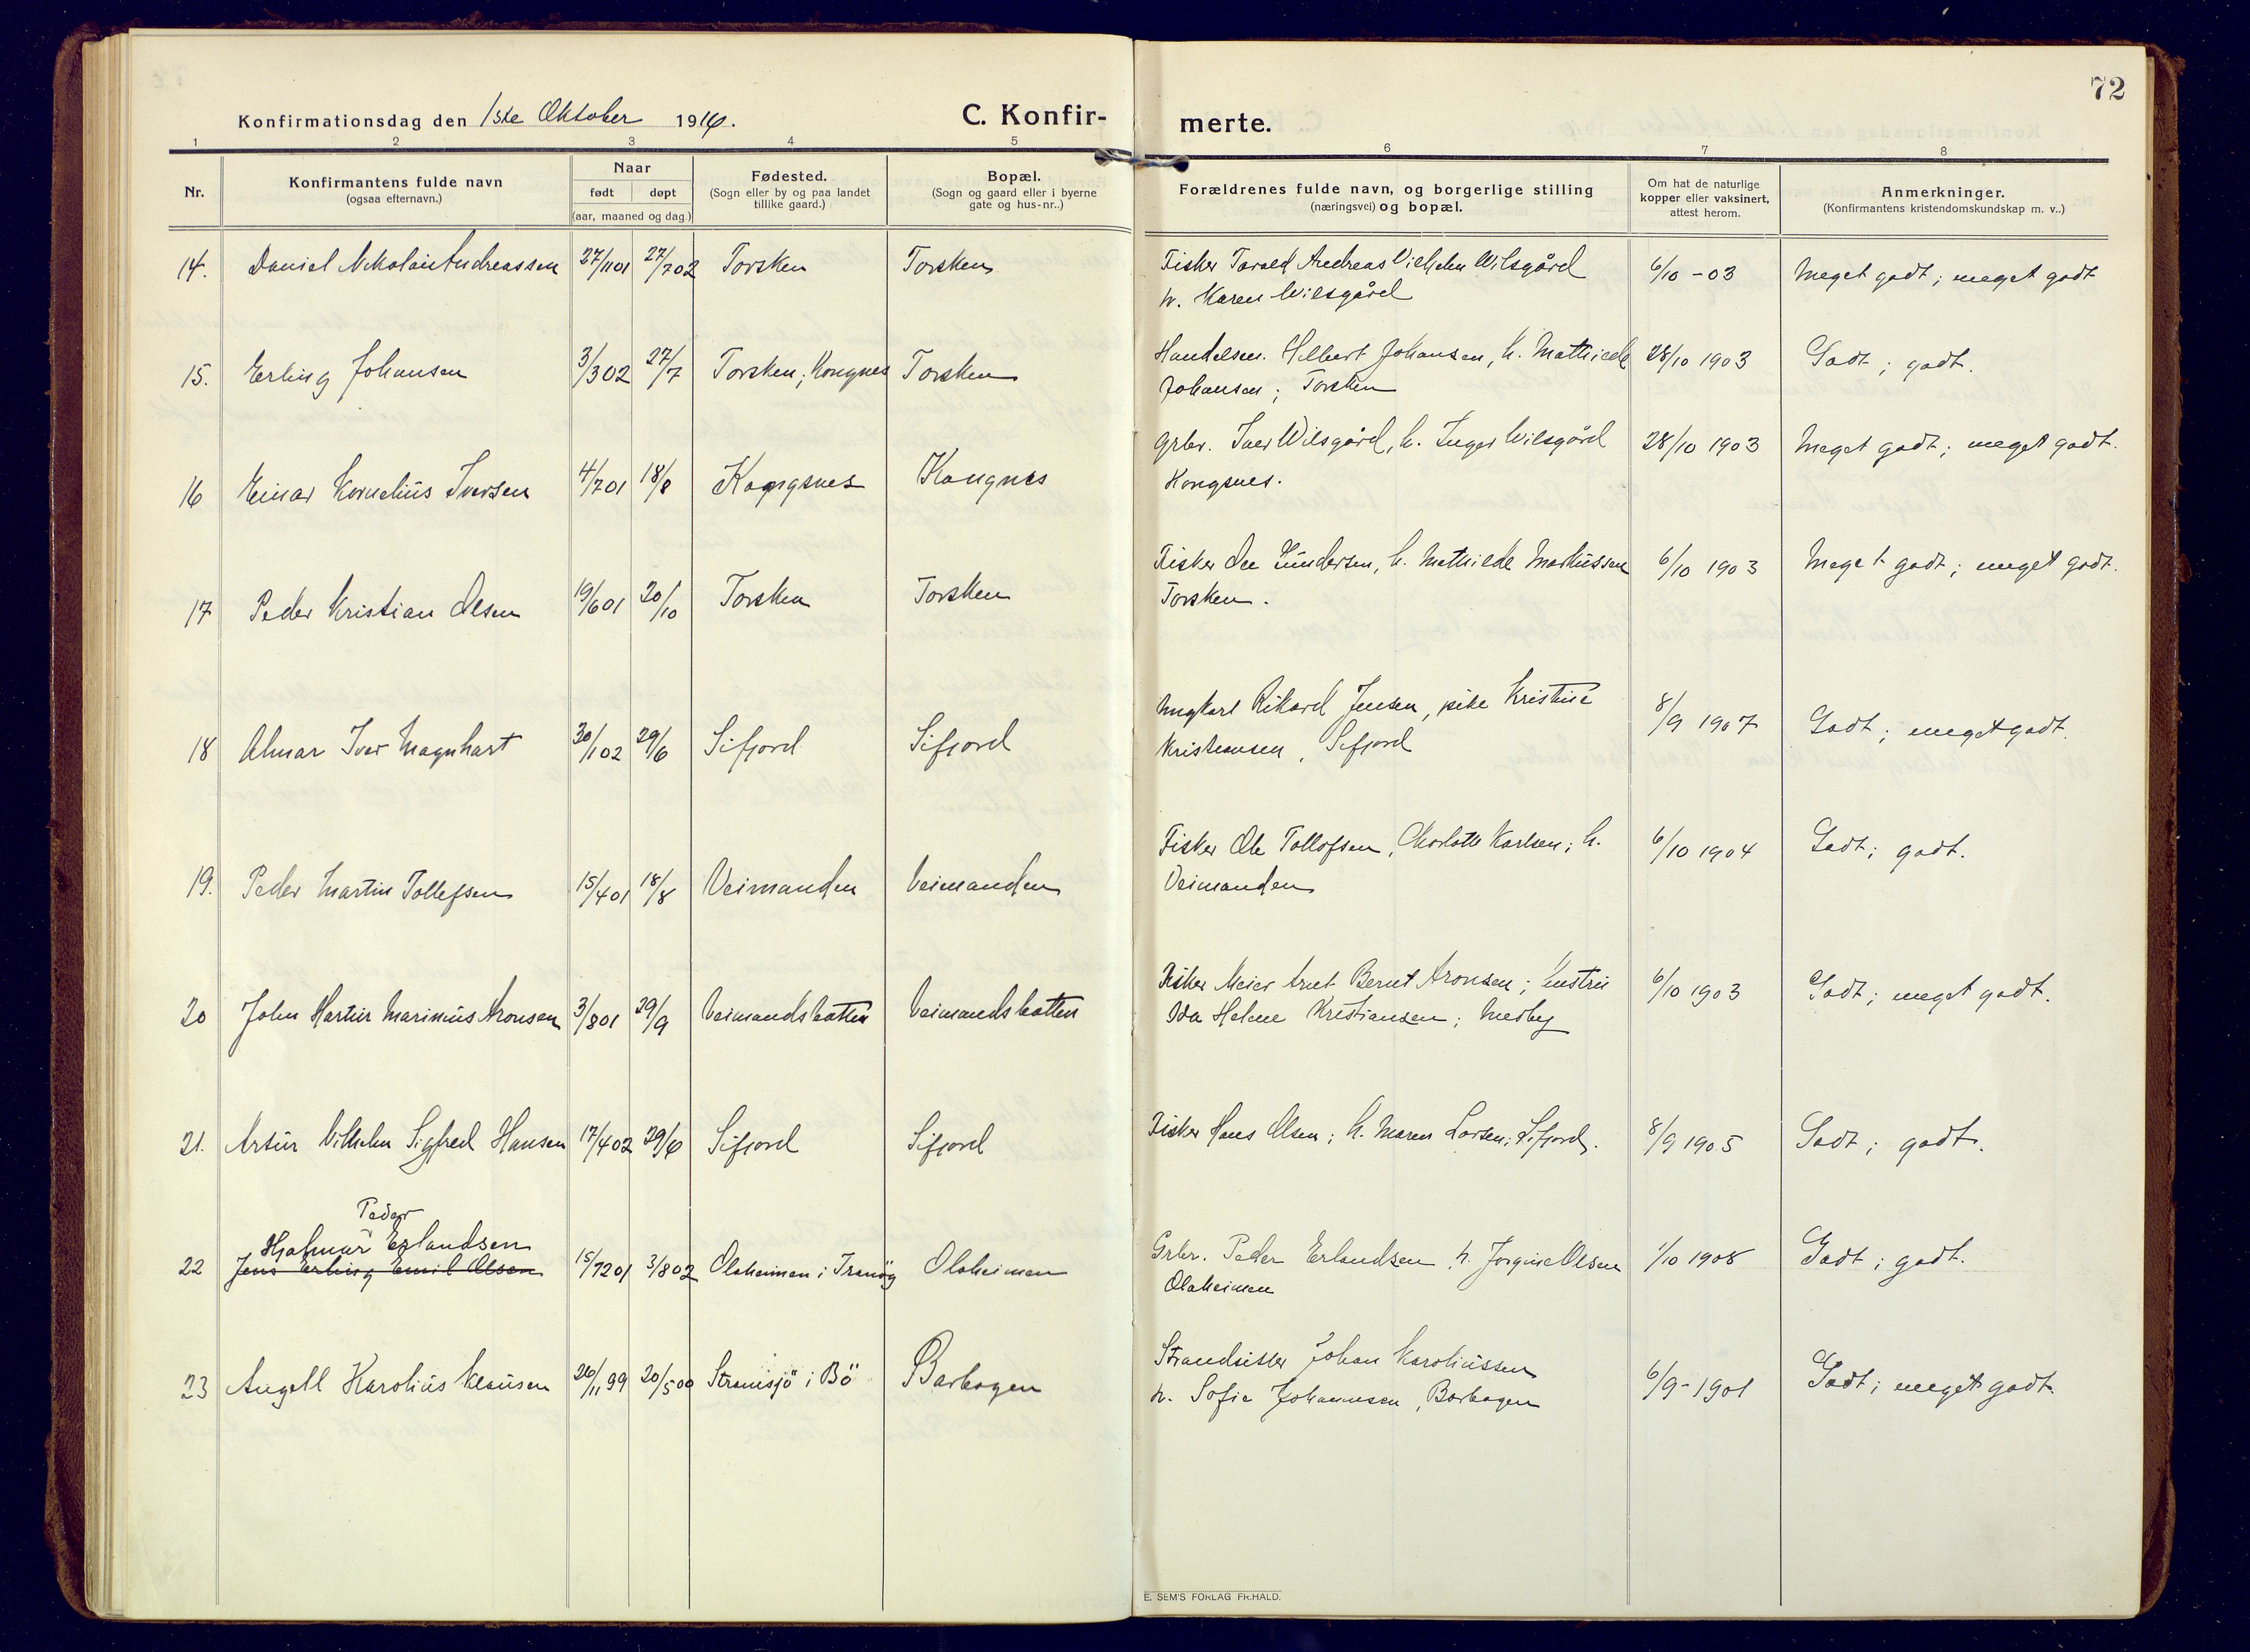 72
Konfirmationsdag den 1ste Oktober 1916.
C. Konfir-
merte.
1 2 3 4 5 6 7 8
Nr.
Konfirmantens fulde navn
(ogsaa efternavn.)
Naar
født døpt
(aar, maaned og dag.)
Fødested.
(Sogn eller by og paa landet
tillike gaard.)
Bopæl.
(Sogn og gaard eller i byerne
gate og hus-nr..)
Forældrenes fulde navn, og borgerlige stilling
(næringsvei) og bopæl.
Om hat de naturlige
kopper eller vaksinert,
attest herom.
Anmerkninger.
(Konfirmantens kristendomskundskap m. v..)
14. Daniel Nikolai Andreassen 27/1101 27/702 Torsken Torsken Fisker Andreas Vilhelm Wilsgård 6/10 -03 Meget godt; meget godt
h. Karen Wilsgård
15. Erling Johansen 3/302 27/7 Torsken; Kongnes Torsken Handelsm. Hilbert Johansen, h. Mathilde 28/10 1903 Godt; godt.
Johansen; Torsken
16 Einar Kornelius Iversen 4/701 18/8 Kongsnes Kongnes Grbr. Iver Wilsgård, h. Inger Wilsgård 28/10 1903 Meget godt; meget godt.
Kongsnes.
17 Peder Kristian Olsen 19/601 20/10 Torsken Torsken Fisker Ole Gundersen, h. Mathilde Markussen 6/10 1903 Meget godt; meget godt.
Torsken.
18 Almar Iver Magnhart 30/102 29/6 Sifjord Sifjord Ungkarl Rikard Jensen, pike Kristine 8/9 1907 Godt; meget godt.
Kristiansen, Sifjord
19. Peder Martin Tollefsen 15/401 18/8 Veimanden Veimanden Fisker Ole Tollofsen, Charlotte Karlsen; h. 6/10 1904 Godt; godt.
Veimanden
20 John Hartur Marinius Aronsen 3/801 29/9 Veimandsbotten Veimandsbotten Fisker Meier Arnt Bernt Aronsen; hustru 6/10 1903 Godt; meget godt.
Ida Helene Kristiansen; Medby
21. Artur Vilhelm Sigfred Hansen 17/402 29/6 Sifjord Sifjord Fisker Hans Olsen; h. Maren Larsen; Sifjord. 8/9 1905 Godt; godt.
Peder
Hjalmar Erlandsen
22 Jens Erling Emil Olsen 15/1201 3/802 Olaheimen i Tranöy Olaheimen Grbr. Peder Erlandsen, h. Jorgine Olsen 1/10 1908 Godt; godt.
Olaheimen
23 Angell Karolius Klausen 26/11 99 20/500 Straumsjö i Bö Barbogen Strandsitter Johan Karoliussen 6/9-1901 Godt; meget godt.
h. Sofie Johannsen, Barbogen
E. SEM'S FORLAG FR.HALD.